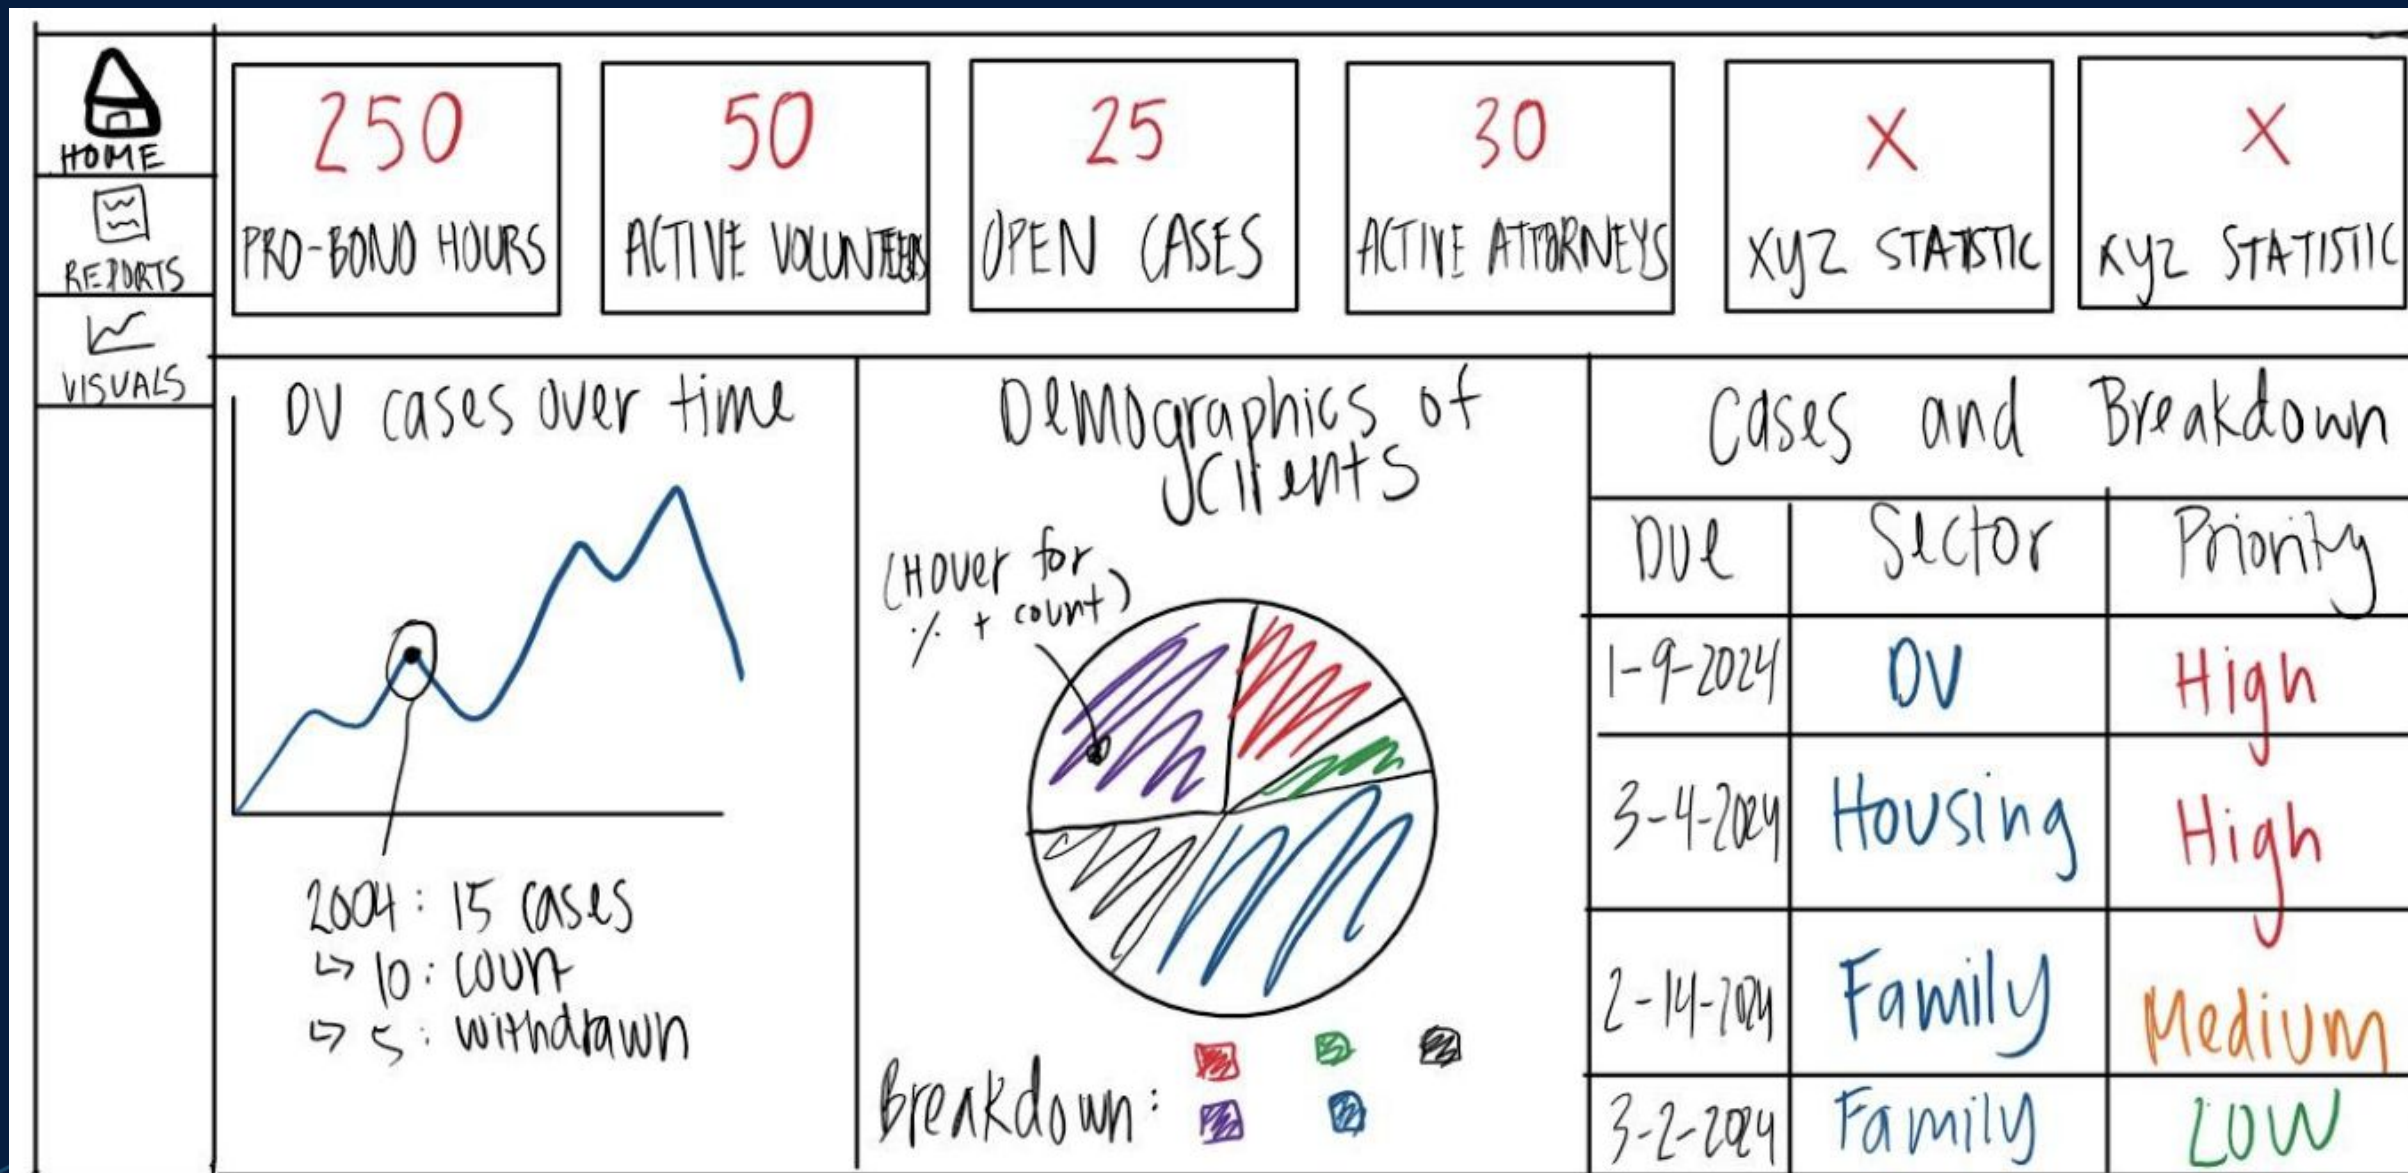 HOME
REPORTS
VISUALS
250
PRO-BONO HOURS
50
ACTIVE VOLUNTEERS
25
OPEN CASES
30
ACTIVE ATTORNEYS
X
XYZ STATISTIC
X
XYZ STATISTIC
DV cases over time
2004: 15 cases
↳ 10: count
↳ 5: withdrawn
Demographics of
Clients
(Hover for
% + count)
Breakdown:
Cases and Breakdown
Due Sector Priority
1-9-2024 DV High
3-4-2024 Housing High
2-14-2024 Family Medium
3-2-2024 Family LOW